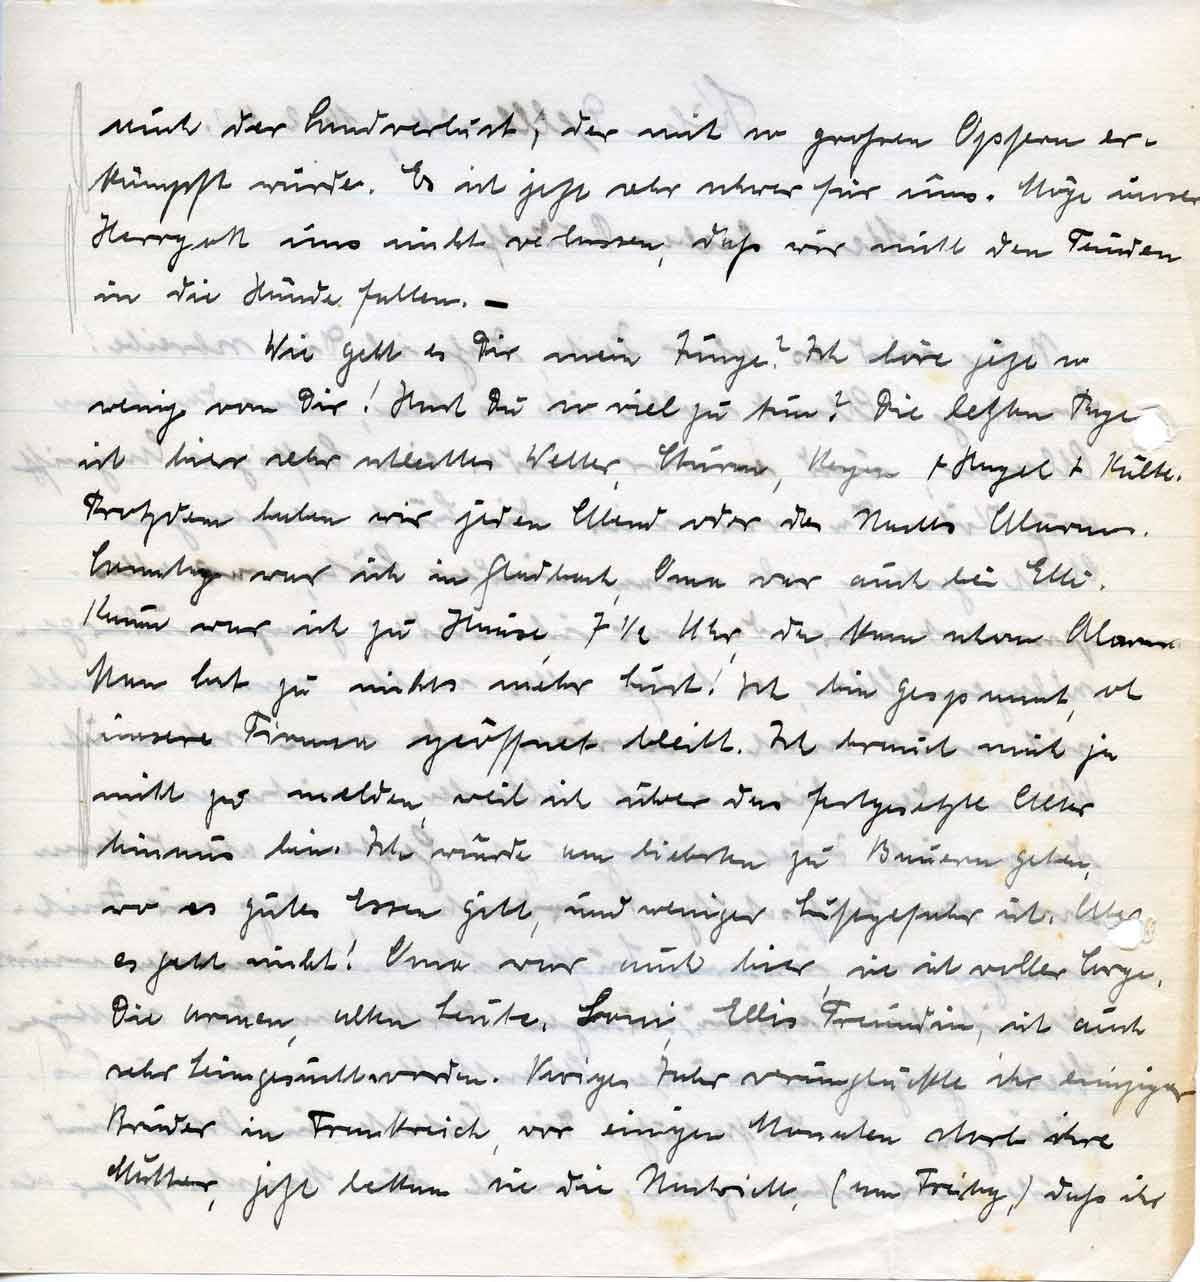 auch der Landverlust, der mit so großen Opfern er-
kämpft wurde. Es ist jetzt sehr schwer für uns. Möge unser
Herrgott uns nicht verlassen, daß wir nicht den Feinden
in die Hände fallen. —
Wie geht es Dir, mein Junge? Ich höre jetzt so
wenig von Dir! Hast Du so viel zu tun? Die letzten Tage
ist hier sehr schlechtes Wetter, Sturm, Regen + Hagel + Kälte.
Trotzdem haben wir jeden Abend oder des Nachts Alarm.
Samstag war ich in Gladbach, Oma war auch bei Elli.
Kaum war ich zu Hause, 7 1/2 Uhr, da kam schon Alarm
Man hat zu nichts mehr Lust! Ich bin gespannt, ob
unsere Firma geöffnet bleibt. Ich brauch mich ja
nicht zu melden, weil ich über das festgesetzte Alter
hinaus bin. Ich würde am liebsten zu Bauern gehen,
wo es gutes Essen gibt, und weniger Luftgefahr ist. Aber
es geht nicht! Oma war auch hier, sie ist voller Sorge.
Die armen, alten Leute. Ellis Freundin, ist auch
sehr heimgesucht worden. Voriges Jahr verunglückte ihr einziger
Bruder in Frankreich, vor einigen Monaten starb ihre
Mutter, jetzt bekam sie die Nachricht, (am Freitag,) daß ihr